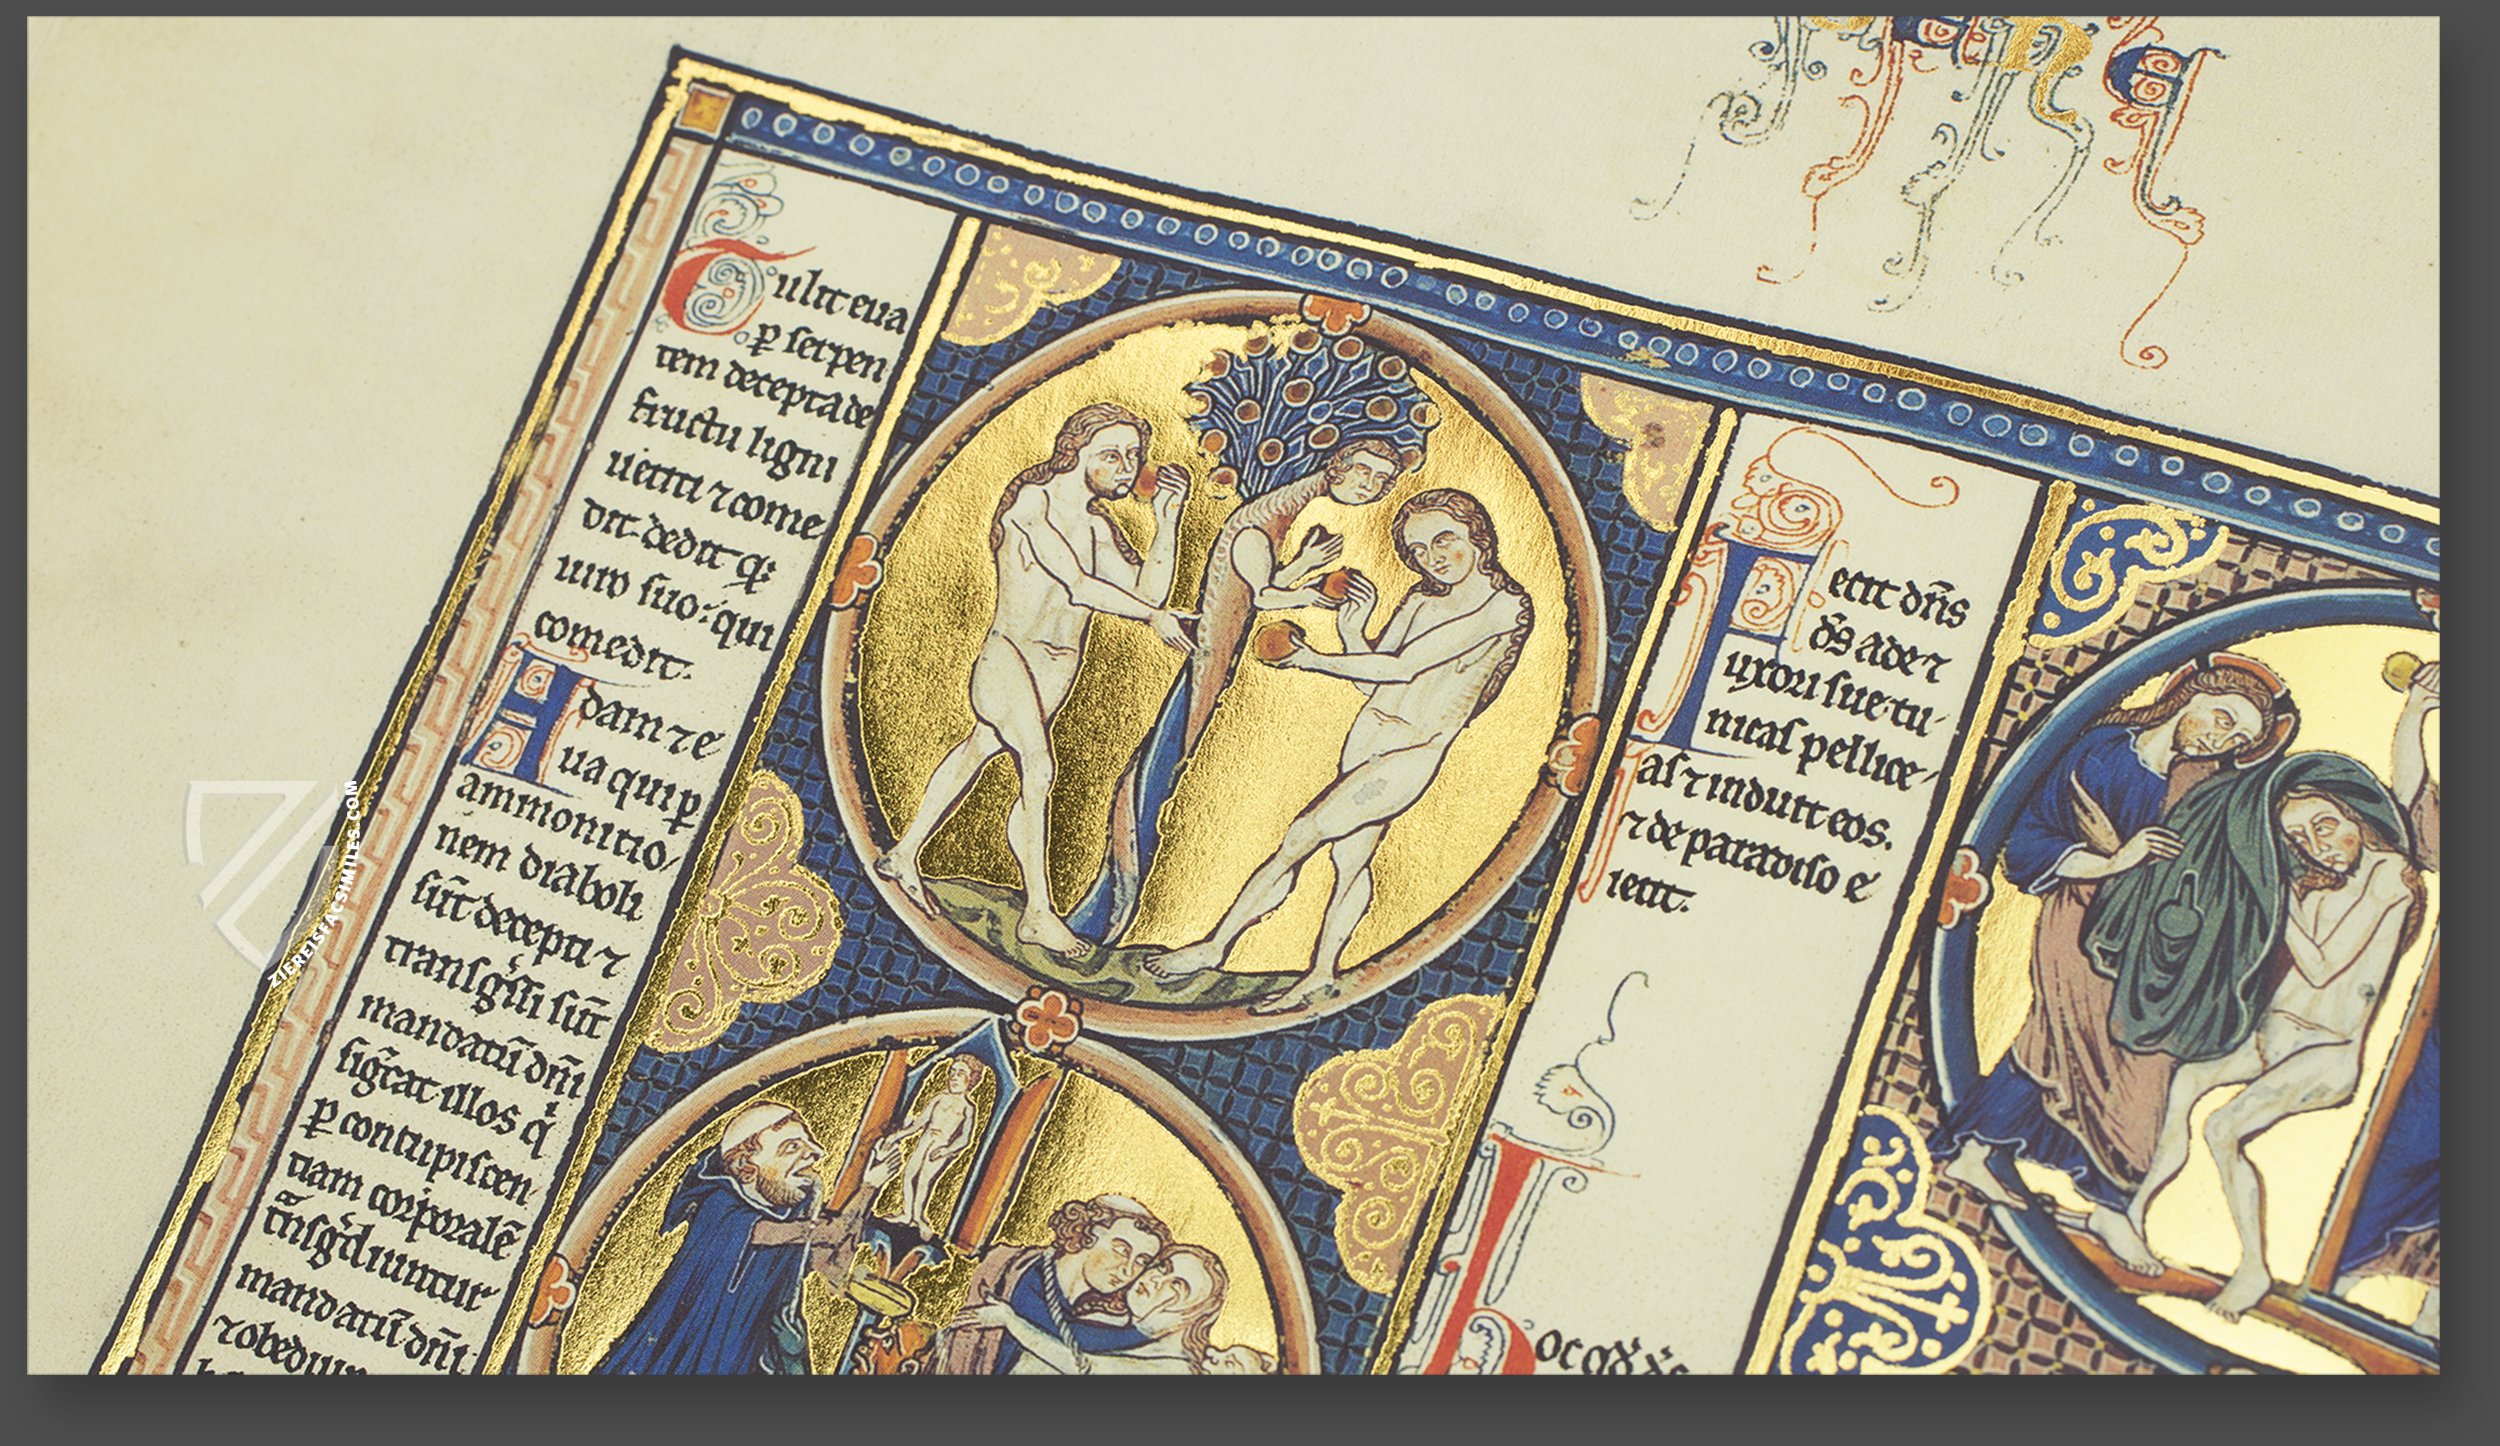 Tulit eua
ꝑ serpen
tem decepta de
fructu ligni
uetiti ⁊ come
dit. dedit qꝫ
uiro suo: qui
comedit.
Adam ⁊ e
ua qui ꝑ
ammonitio
nem diaboli
sūt decepti ⁊
transgͥssi sūt
mandatū dn̄i
sigͣcat illos qͥ
ꝑ concupiscen
tiam corporalē
tͣnsgͥdiuntur
mandatū dn̄i
⁊ obediun
Fecit dn̄s
ds̄ ade ⁊
uxori sue tu
nicas pellice
as ⁊ induit eos.
⁊ de paradiso e
iecit.
ZIEREISFACSIMILES.COM